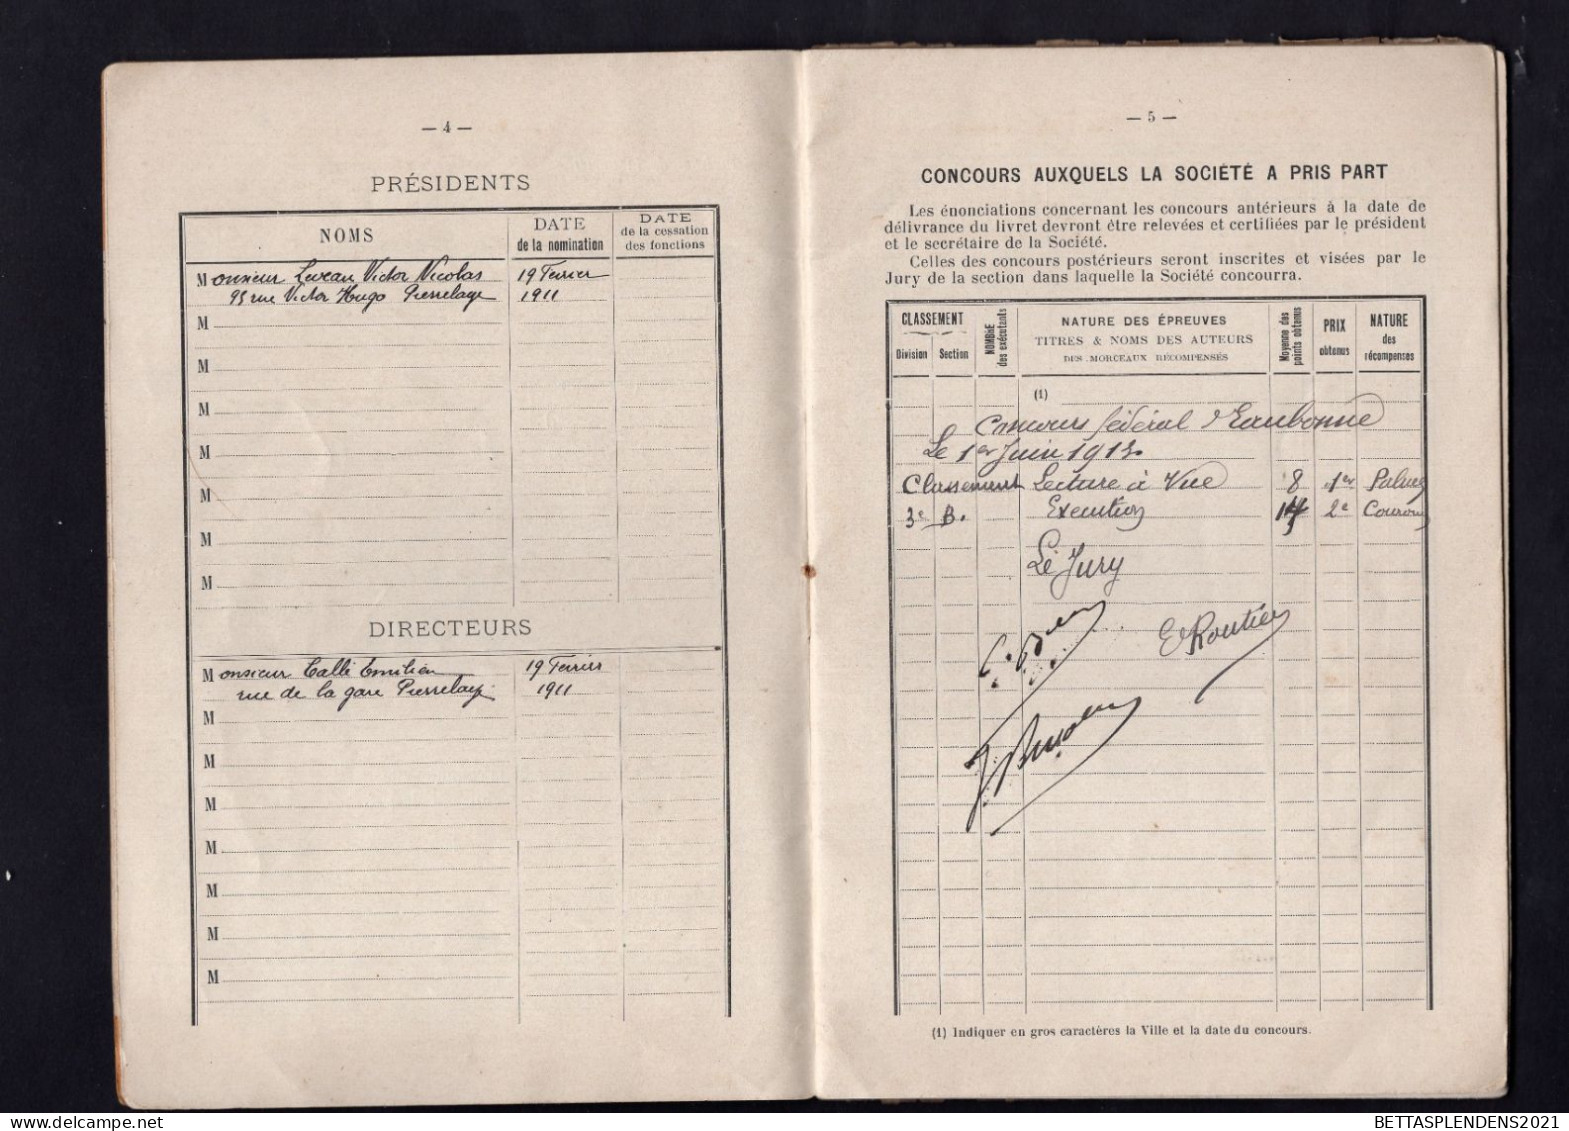 — 4 —
PRÉSIDENTS
NOMS
DATE
de la nomination
DATE
de la cessation
des fonctions
Monsieur Leveau Victor Nicolas
19 Fevrier
95 rue Victor Hugo Pierrelaye
1911
M
M
M
M
M
M
M
DIRECTEURS
Monsieur Callé Emilien
19 Fevrier
rue de la gare Pierrelaye
1911
M
M
M
M
M
M
M
— 5 —
CONCOURS AUXQUELS LA SOCIÉTÉ A PRIS PART
Les énonciations concernant les concours antérieurs à la date de
délivrance du livret devront être relevées et certifiées par le président
et le secrétaire de la Société.
Celles des concours postérieurs seront inscrites et visées par le
Jury de la section dans laquelle la Société concourra.
CLASSEMENT
Division
Section
NOMBRE
des exécutants
NATURE DES ÉPREUVES
TITRES & NOMS DES AUTEURS
DES MORCEAUX RÉCOMPENSÉS
Moyenne des
points obtenus
PRIX
obtenus
NATURE
des
récompenses
(1)
Concours fédéral d'Eaubonne
Le 1er Juin 1913
Classement Lecture à Vue 8 1er Palme
3e B. Exécution 2e Couronne
Le Jury
E Routier
(1) Indiquer en gros caractères la Ville et la date du concours.
BETTASPLENDENS2021